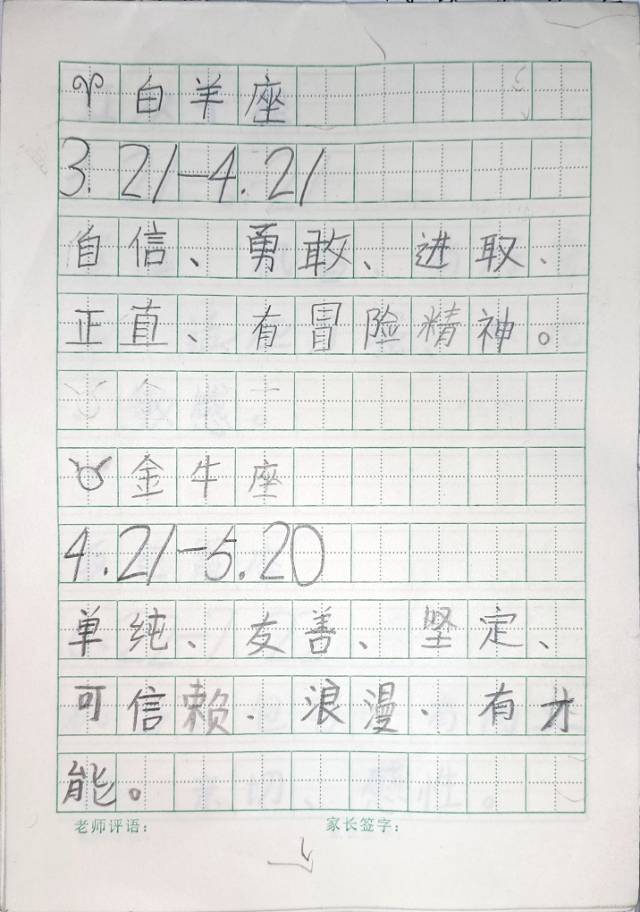 ♈白羊座
3.21-4.21
自信、勇敢、进取、
正直、有冒险精神。
♉金牛座
4.21-5.20
单纯、友善、坚定、
可信赖、浪漫、有才
能。
老师评语： 家长签字：